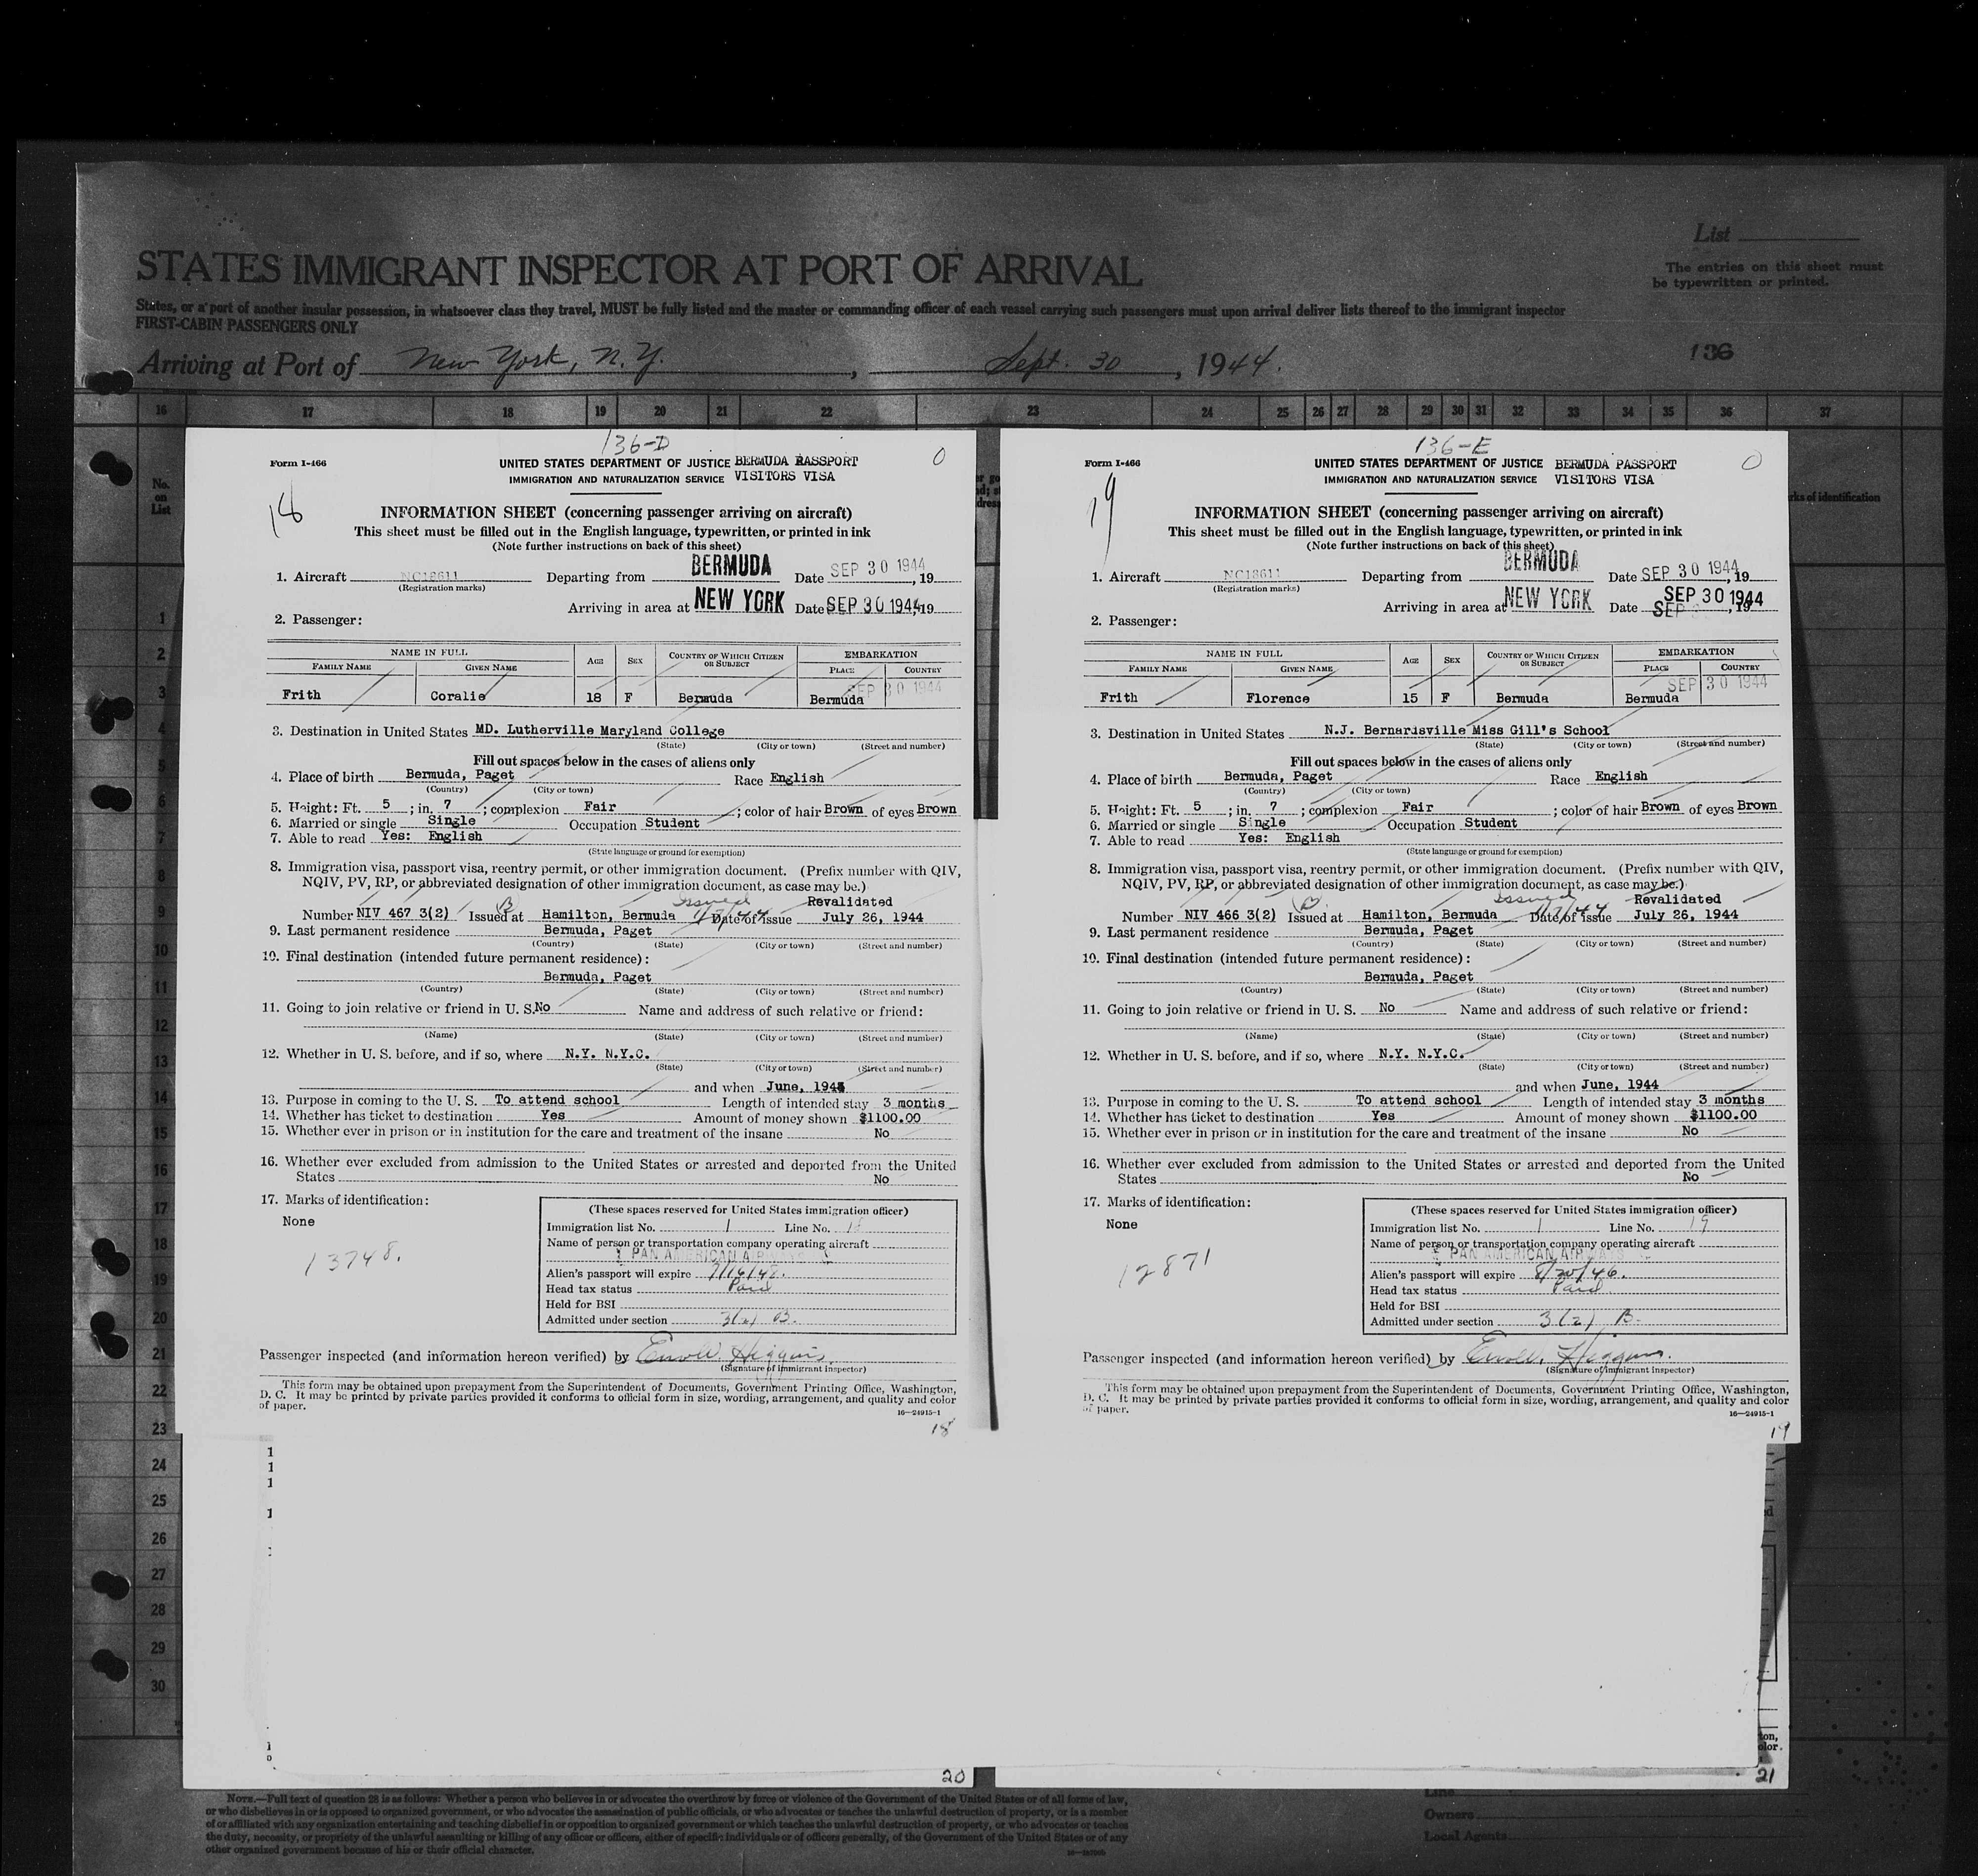 List
STATES IMMIGRANT INSPECTOR AT PORT OF ARRIVAL
The entries on this sheet must
be typewritten or printed.
States, or a port of another insular possession, in whatsoever class they travel, MUST be fully listed and the master or commanding officer of each vessel carrying such passengers must upon arrival deliver lists thereof to the immigrant inspector
FIRST-CABIN PASSENGERS ONLY
Arriving at Port of New York, N.Y., Sept. 30, 1944.
136
16 17 18 19 20 21 22 23 24 25 26 27 28 29 30 31 32 33 34 35 36 37
No.
on
List
rks of identification
136-D
Form I-466
UNITED STATES DEPARTMENT OF JUSTICE BERMUDA PASSPORT
IMMIGRATION AND NATURALIZATION SERVICE VISITORS VISA
0
18
INFORMATION SHEET (concerning passenger arriving on aircraft)
This sheet must be filled out in the English language, typewritten, or printed in ink
(Note further instructions on back of this sheet)
1. Aircraft NC18611 Departing from BERMUDA Date SEP 30 1944, 19
(Registration marks)
Arriving in area at NEW YORK Date SEP 30 1944, 19
2. Passenger:
NAME IN FULL AGE SEX COUNTRY OF WHICH CITIZEN OR SUBJECT EMBARKATION
FAMILY NAME GIVEN NAME PLACE COUNTRY
SEP 30 1944
Frith Coralie 18 F Bermuda Bermuda
3. Destination in United States MD. Lutherville Maryland College
(State) (City or town) (Street and number)
Fill out spaces below in the cases of aliens only
4. Place of birth Bermuda, Paget Race English
(Country) (City or town)
5. Height: Ft. 5 ; in. 7 ; complexion Fair ; color of hair Brown of eyes Brown
6. Married or single Single Occupation Student
7. Able to read Yes: English
(State language or ground for exemption)
8. Immigration visa, passport visa, reentry permit, or other immigration document. (Prefix number with QIV,
NQIV, PV, RP, or abbreviated designation of other immigration document, as case may be.)
Issued Revalidated
Number NIV 467 3(2) B Issued at Hamilton, Bermuda Date of issue July 26, 1944
9. Last permanent residence Bermuda, Paget
(Country) (State) (City or town) (Street and number)
10. Final destination (intended future permanent residence):
Bermuda, Paget
(Country) (State) (City or town) (Street and number)
11. Going to join relative or friend in U. S. No Name and address of such relative or friend:
(Name) (State) (City or town) (Street and number)
12. Whether in U. S. before, and if so, where N.Y. N.Y.C.
(State) (City or town) (Street and number)
and when June, 1944
13. Purpose in coming to the U. S. To attend school Length of intended stay 3 months
14. Whether has ticket to destination Yes Amount of money shown $1100.00
15. Whether ever in prison or in institution for the care and treatment of the insane No
16. Whether ever excluded from admission to the United States or arrested and deported from the United
States No
17. Marks of identification:
None
13748.
(These spaces reserved for United States immigration officer)
Immigration list No. 1 Line No. 18
Name of person or transportation company operating aircraft
PAN AMERICAN AIRWAYS
Alien's passport will expire 7/16/48.
Head tax status Paid
Held for BSI
Admitted under section 3(2) B.
Passenger inspected (and information hereon verified) by Higgins
(Signature of immigrant inspector)
This form may be obtained upon prepayment from the Superintendent of Documents, Government Printing Office, Washington,
D. C. It may be printed by private parties provided it conforms to official form in size, wording, arrangement, and quality and color
of paper.
16—24915-1
18
136-E
Form I-466
UNITED STATES DEPARTMENT OF JUSTICE BERMUDA PASSPORT
IMMIGRATION AND NATURALIZATION SERVICE VISITORS VISA
0
19
INFORMATION SHEET (concerning passenger arriving on aircraft)
This sheet must be filled out in the English language, typewritten, or printed in ink
(Note further instructions on back of this sheet)
1. Aircraft NC18611 Departing from BERMUDA Date SEP 30 1944, 19
(Registration marks)
Arriving in area at NEW YORK Date SEP 30 1944, 19
SEP 3
2. Passenger:
NAME IN FULL AGE SEX COUNTRY OF WHICH CITIZEN OR SUBJECT EMBARKATION
FAMILY NAME GIVEN NAME PLACE COUNTRY
SEP 30 1944
Frith Florence 15 F Bermuda Bermuda
3. Destination in United States N.J. Bernardsville Miss Gill's School
(State) (City or town) (Street and number)
Fill out spaces below in the cases of aliens only
4. Place of birth Bermuda, Paget Race English
(Country) (City or town)
5. Height: Ft. 5 ; in. 7 ; complexion Fair ; color of hair Brown of eyes Brown
6. Married or single Single Occupation Student
7. Able to read Yes: English
(State language or ground for exemption)
8. Immigration visa, passport visa, reentry permit, or other immigration document. (Prefix number with QIV,
NQIV, PV, RP, or abbreviated designation of other immigration document, as case may be.)
Issued Revalidated
Number NIV 466 3(2) B Issued at Hamilton, Bermuda Date of issue July 26, 1944
9. Last permanent residence Bermuda, Paget
(Country) (State) (City or town) (Street and number)
10. Final destination (intended future permanent residence):
Bermuda, Paget
(Country) (State) (City or town) (Street and number)
11. Going to join relative or friend in U. S. No Name and address of such relative or friend:
(Name) (State) (City or town) (Street and number)
12. Whether in U. S. before, and if so, where N.Y. N.Y.C.
(State) (City or town) (Street and number)
and when June, 1944
13. Purpose in coming to the U. S. To attend school Length of intended stay 3 months
14. Whether has ticket to destination Yes Amount of money shown $1100.00
15. Whether ever in prison or in institution for the care and treatment of the insane No
16. Whether ever excluded from admission to the United States or arrested and deported from the United
States No
17. Marks of identification:
None
12871
(These spaces reserved for United States immigration officer)
Immigration list No. 1 Line No. 19
Name of person or transportation company operating aircraft
PAN AMERICAN AIRWAYS
Alien's passport will expire 8/20/46.
Head tax status Paid
Held for BSI
Admitted under section 3(2) B.
Passenger inspected (and information hereon verified) by Higgins.
(Signature of immigrant inspector)
This form may be obtained upon prepayment from the Superintendent of Documents, Government Printing Office, Washington,
D. C. It may be printed by private parties provided it conforms to official form in size, wording, arrangement, and quality and color
of paper.
16—24915-1
19
1
2
3
4
5
6
7
8
9
10
11
12
13
14
15
16
17
18
19
20
21
22
23
24
25
26
27
28
29
30
20
21
NOTE.—Full text of question 28 is as follows: Whether a person who believes in or advocates the overthrow by force or violence of the Government of the United States or of all forms of law,
or who disbelieves in or is opposed to organized government, or who advocates the assassination of public officials, or who advocates or teaches the unlawful destruction of property, or is a member
of or affiliated with any organization entertaining and teaching disbelief in or opposition to organized government or which teaches the unlawful destruction of property, or who advocates or teaches
the duty, necessity, or propriety of the unlawful assaulting or killing of any officer or officers, either of specific individuals or of officers generally, of the Government of the United States or of any
other organized government because of his or their official character.
Line
Owners
Local Agents